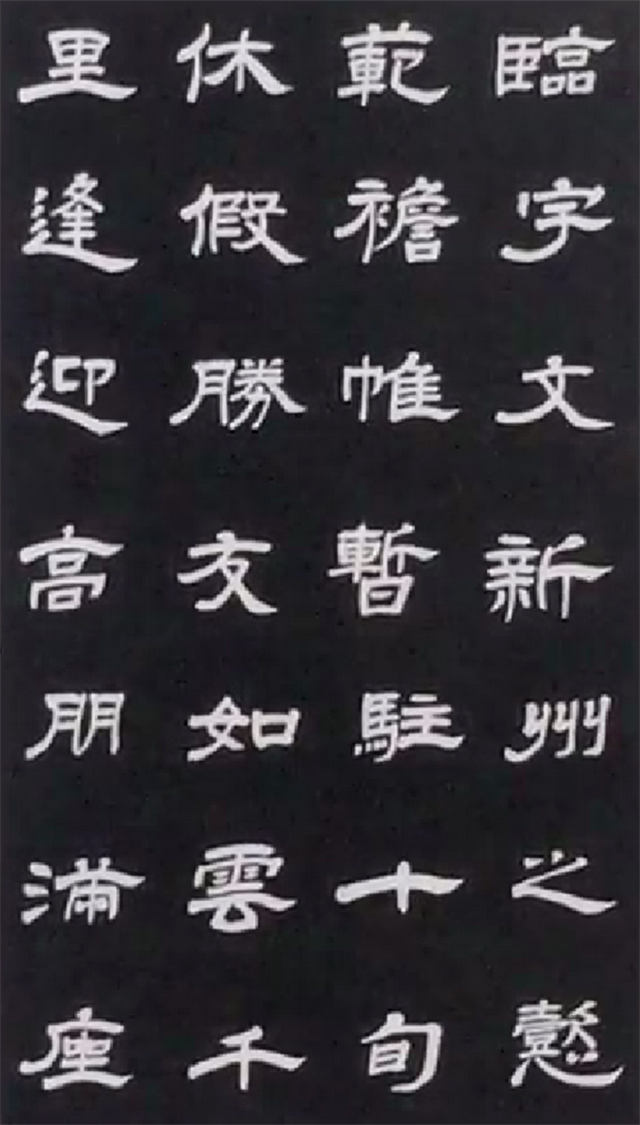 臨字文新州之懿
範襜帷暫駐十旬
休假勝友如雲千
里逢迎高朋滿座